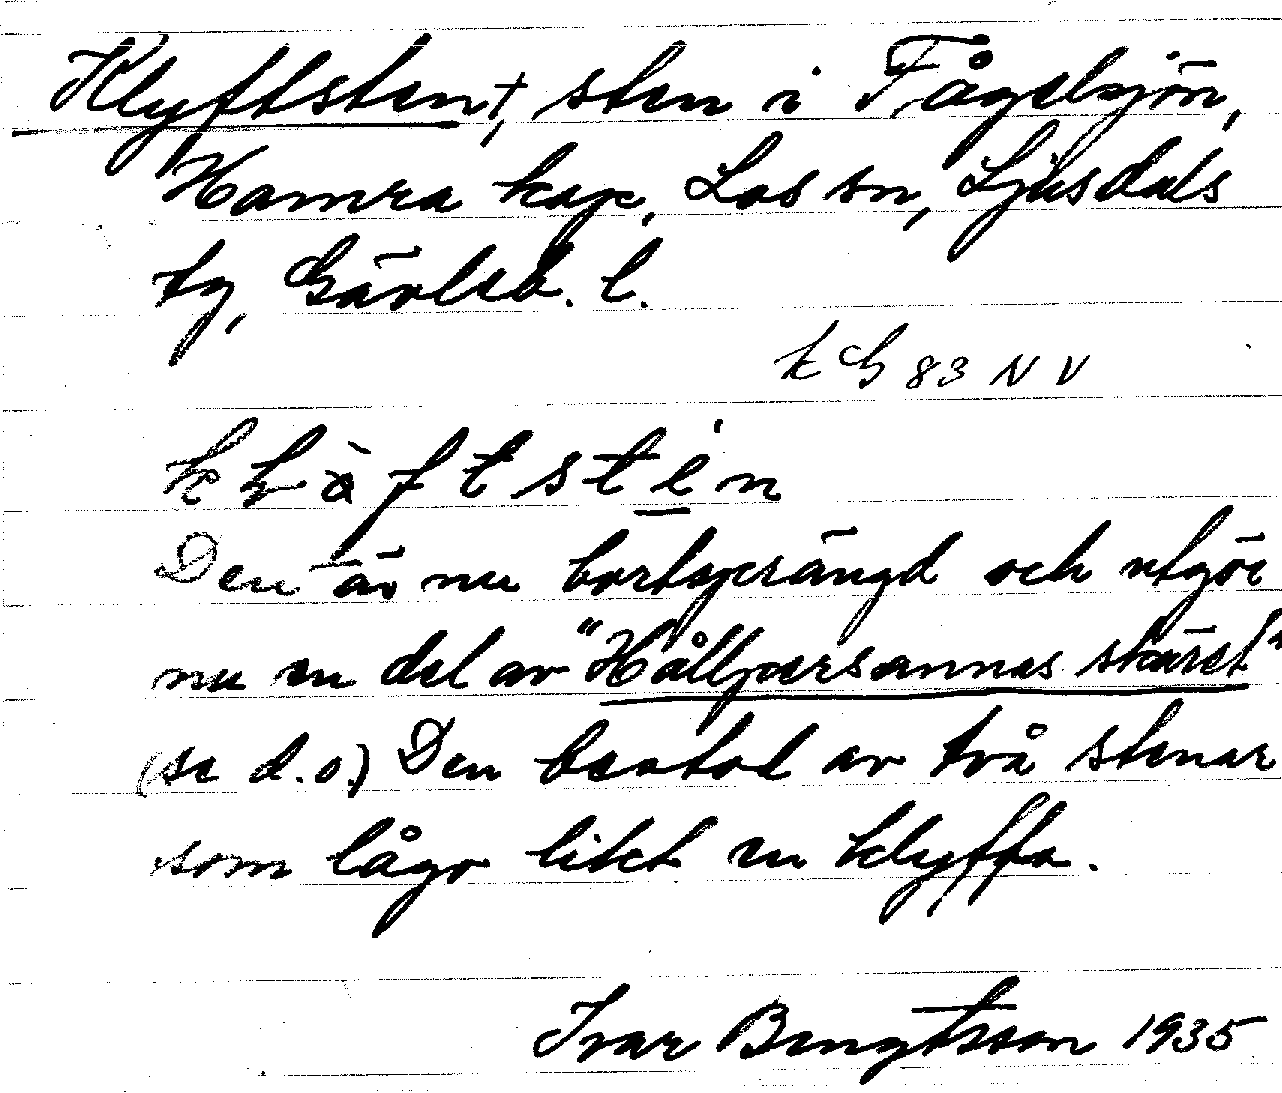 Klyftsten†, sten i Fågelsjön,
Hamra kap, Los sn, Ljusdals
tg, Gävleb. l.
k G 83 N V
Den är nu bortsprängd och utgör
nu en del av "Hållparsannas skäret"
(se d.o.) Den bestod av två stenar
som lågo likt en klyfta.
Ivar Bengtsson 1935